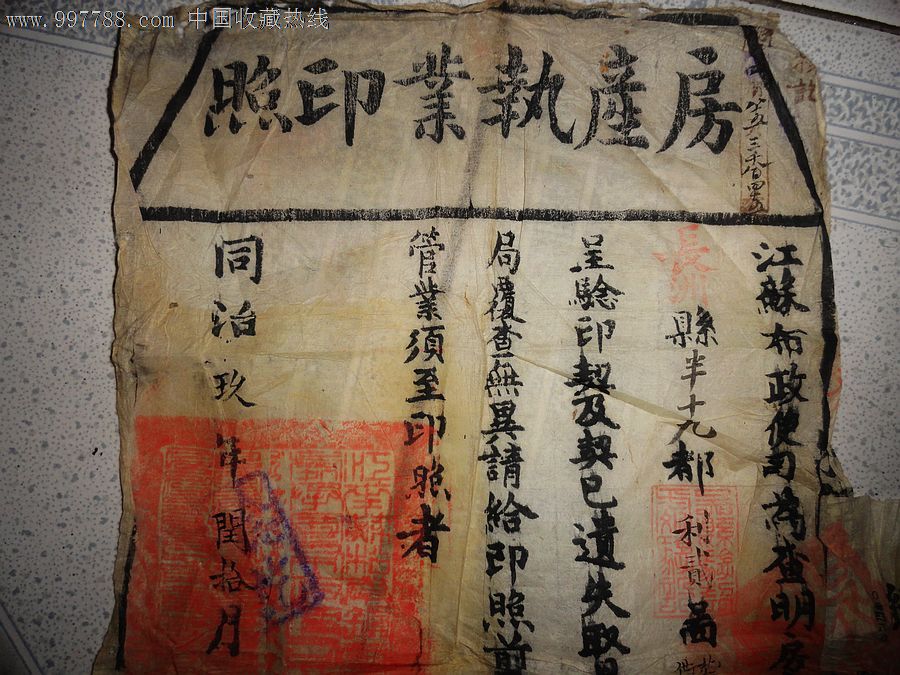 www.997788.com 中国收藏热线
房產執業印照
江蘇布政使司為查明房
長洲縣半十九都利貳啚
呈驗印契及契已遺失取具
局覆查無異請給印照前
管業須至印照者
同治玖年閏拾月